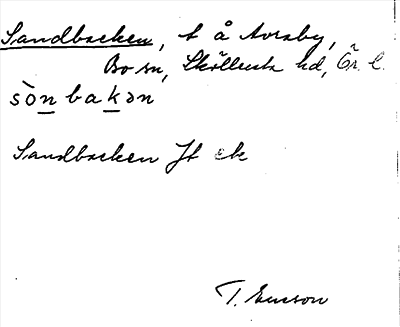 Sandbacken, t å Avraby,
Bo sn, Sköllersta hd, Ör. l.
sò̀n bakən
Sandbacken Jt ek
T. Ericson